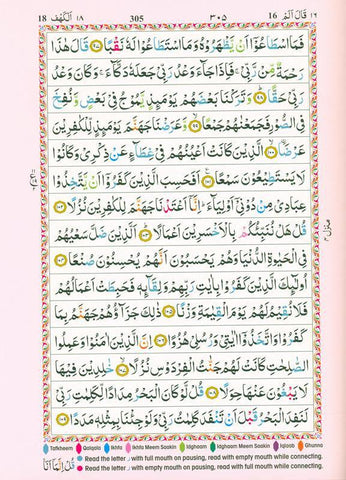 18 اَلْكَهْف ١٨ 305 ٣٠٥ 16 قَالَ اَلَمْ ١٦
فَمَا اسْطَاعُوْٓا اَنْ يَّظْهَرُوْهُ وَمَا اسْتَطَاعُوْا لَهٗ نَقْبًا ٩٧ قَالَ هٰذَا
رَحْمَةٌ مِّنْ رَّبِّيْ ۚ فَاِذَا جَآءَ وَعْدُ رَبِّيْ جَعَلَهٗ دَكَّآءَ ۚ وَكَانَ وَعْدُ
رَبِّيْ حَقًّا ٩٨ وَتَرَكْنَا بَعْضَهُمْ يَوْمَئِذٍ يَّمُوْجُ فِيْ بَعْضٍ وَّنُفِخَ
فِي الصُّوْرِ فَجَمَعْنٰهُمْ جَمْعًا ٩٩ وَّعَرَضْنَا جَهَنَّمَ يَوْمَئِذٍ لِّلْكٰفِرِيْنَ
عَرْضًا ١٠٠ الَّذِيْنَ كَانَتْ اَعْيُنُهُمْ فِيْ غِطَآءٍ عَنْ ذِكْرِيْ وَكَانُوْا
لَا يَسْتَطِيْعُوْنَ سَمْعًا ١٠١ اَفَحَسِبَ الَّذِيْنَ كَفَرُوْٓا اَنْ يَّتَّخِذُوْا
عِبَادِيْ مِنْ دُوْنِيْٓ اَوْلِيَآءَ ۭ اِنَّآ اَعْتَدْنَا جَهَنَّمَ لِلْكٰفِرِيْنَ نُزُلًا ١٠٢
قُلْ هَلْ نُنَبِّئُكُمْ بِالْاَخْسَرِيْنَ اَعْمَالًا ١٠٣ اَلَّذِيْنَ ضَلَّ سَعْيُهُمْ
فِي الْحَيٰوةِ الدُّنْيَا وَهُمْ يَحْسَبُوْنَ اَنَّهُمْ يُحْسِنُوْنَ صُنْعًا ١٠٤
اُولٰٓئِكَ الَّذِيْنَ كَفَرُوْا بِاٰيٰتِ رَبِّهِمْ وَلِقَآئِهٖ فَحَبِطَتْ اَعْمَالُهُمْ
فَلَا نُقِيْمُ لَهُمْ يَوْمَ الْقِيٰمَةِ وَزْنًا ١٠٥ ذٰلِكَ جَزَآؤُهُمْ جَهَنَّمُ بِمَا
كَفَرُوْا وَاتَّخَذُوْٓا اٰيٰتِيْ وَرُسُلِيْ هُزُوًا ١٠٦ اِنَّ الَّذِيْنَ اٰمَنُوْا وَعَمِلُوا
الصّٰلِحٰتِ كَانَتْ لَهُمْ جَنّٰتُ الْفِرْدَوْسِ نُزُلًا ١٠٧ خٰلِدِيْنَ فِيْهَا
لَا يَبْغُوْنَ عَنْهَا حِوَلًا ١٠٨ قُلْ لَّوْ كَانَ الْبَحْرُ مِدَادًا لِّكَلِمٰتِ رَبِّيْ
لَنَفِدَ الْبَحْرُ قَبْلَ اَنْ تَنْفَدَ كَلِمٰتُ رَبِّيْ وَلَوْ جِئْنَا بِمِثْلِهٖ مَدَدًا ١٠٩
Tafkheem Qalqala Ikhfa Ikhfa Meem Saakin Idghaam Idghaam Meem Saakin Iqlaab Ghunna
Read the letter ر with full mouth on pausing, read with empty mouth while connecting.
Read the letter ر with empty mouth on pausing, read with full mouth while connecting.
قُلْ اِنَّمَآ اَنَا